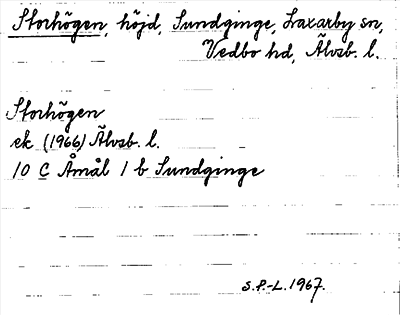 Storhögen, höjd, Sundginge, Laxarby sn,
Vedbo hd, Älvsb. l.
Storhögen
ek (1966) Älvsb. l.
10 C Åmål 1 b Sundginge
S.P.-L. 1967.